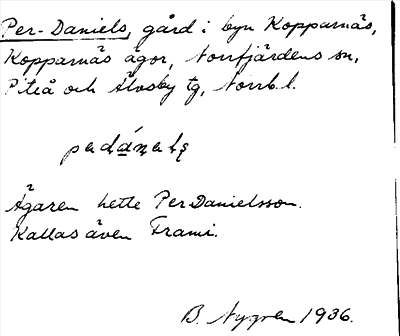 Per-Daniels, gård i byn Kopparnäs,
Kopparnäs ägor, Norrfjärdens sn,
Piteå och Älvsby tg, Norrb. l.
Ägaren hette Per Danielsson.
Kallas även Frami.
B. Nygren 1936.